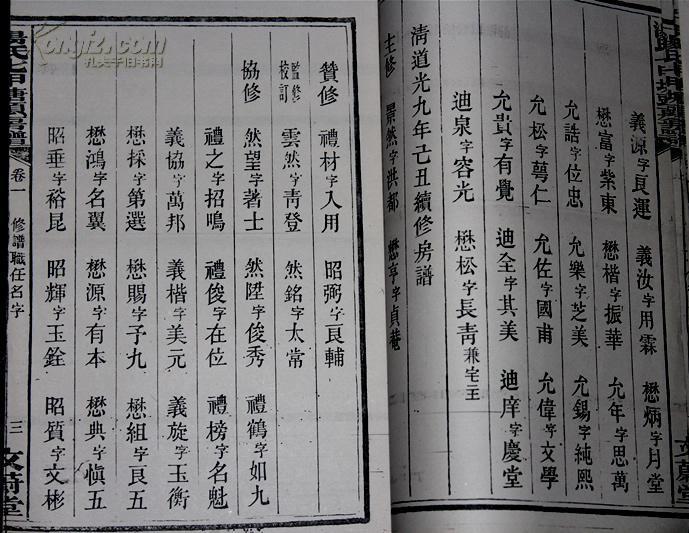 義源字良運 義汝字用霖 懋炳字月堂
懋富字紫東 懋楷字振華 允年字思萬
允誥字位忠 允樂字芝美 允錫字純熙
允松字萼仁 允佐字國甫 允偉字文學
允貴字有覺 迪全字其美 迪庠字慶堂
迪泉字容光 懋松字長青兼宅主
清道光九年己丑續修房譜
主修 景然字洪都 懋亨字貞菴
贊修 禮材字入用 昭弼字良輔
監修校訂 雲然字青登 然銘字太常
協修 然望字著士 然陞字俊秀 禮鶴字如九
禮之字招鳴 禮俊字在位 禮榜字名魁
義協字萬邦 義楷字美元 義旋字玉衡
懋採字第選 懋賜字予九 懋組字良五
懋鴻字名翼 懋源字有本 懋典字慎五
昭垂字裕昆 昭輝字玉銓 昭質字文彬
卷一 修譜職任名字 三 文蔚堂
kongfz.com
孔夫子旧书网